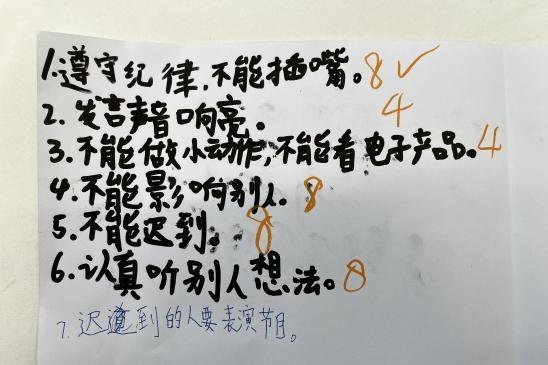 1.遵守纪律,不能插嘴。8✓
2.发言声音响亮。4
3.不能做小动作,不能看电子产品。4
4.不能影响别人。8
5.不能迟到。8
6.认真听别人想法。8
7.迟到的人要表演节目。